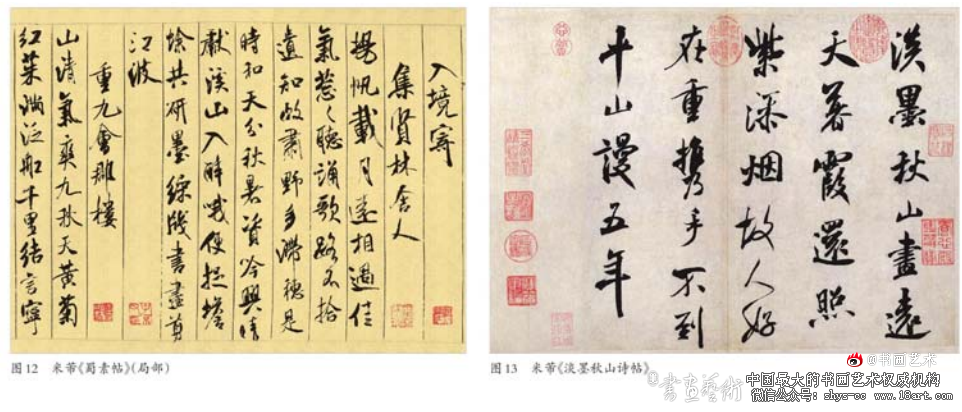 入境寄
集賢林舍人
揚帆載月遠相過佳
氣葱々聽誦歌路不拾
遺知政肅野多滯穗是
時和天分秋暑資吟興晴
獻溪山入醉哦便捉蟾
蜍共研墨綵牋書盡剪
江波
重九會郡樓
山清氣爽九秋天黃菊
紅茱滿泛船千里結言寧
淡墨秋山畫遠
天暮霞還照
紫添烟故人好
在重攜手不到
平山謾五年
图12 米芾《蜀素帖》(局部)
图13 米芾《淡墨秋山诗帖》
@书画艺术
书画艺术
中国最大的书画艺术权威机构
微信公众号:shys-oo www.18art.com